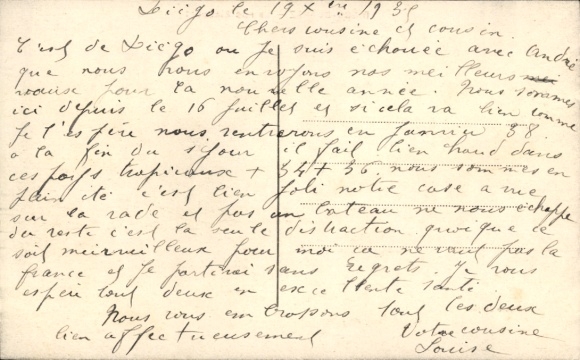 Diégo le 19 Xbre 193
Chers cousine et cousin
C'est de Diégo ou je suis échouée avec André
que nous vous envoyons nos meilleurs
pour la nouvelle année. Nous sommes
ici depuis le 16 Juillet et si cela va bien comme
je l'espère nous rentrerons en Janvier 38
a la fin du séjour il fait bien chaud dans
ces pays tropicaux + 34 + 36 nous sommes en
plein été c'est bien joli notre case a vue
sur la rade et pas un bateau ne nous échappe
du reste c'est la seule distraction quoique ce
soit merveilleux pour moi ca ne vaut pas la
france et je partirai sans regrets. Je vous
espère tout deux en excellente santé
Nous vous embrassons tout les deux
bien affectueusement Votre cousine
Louise